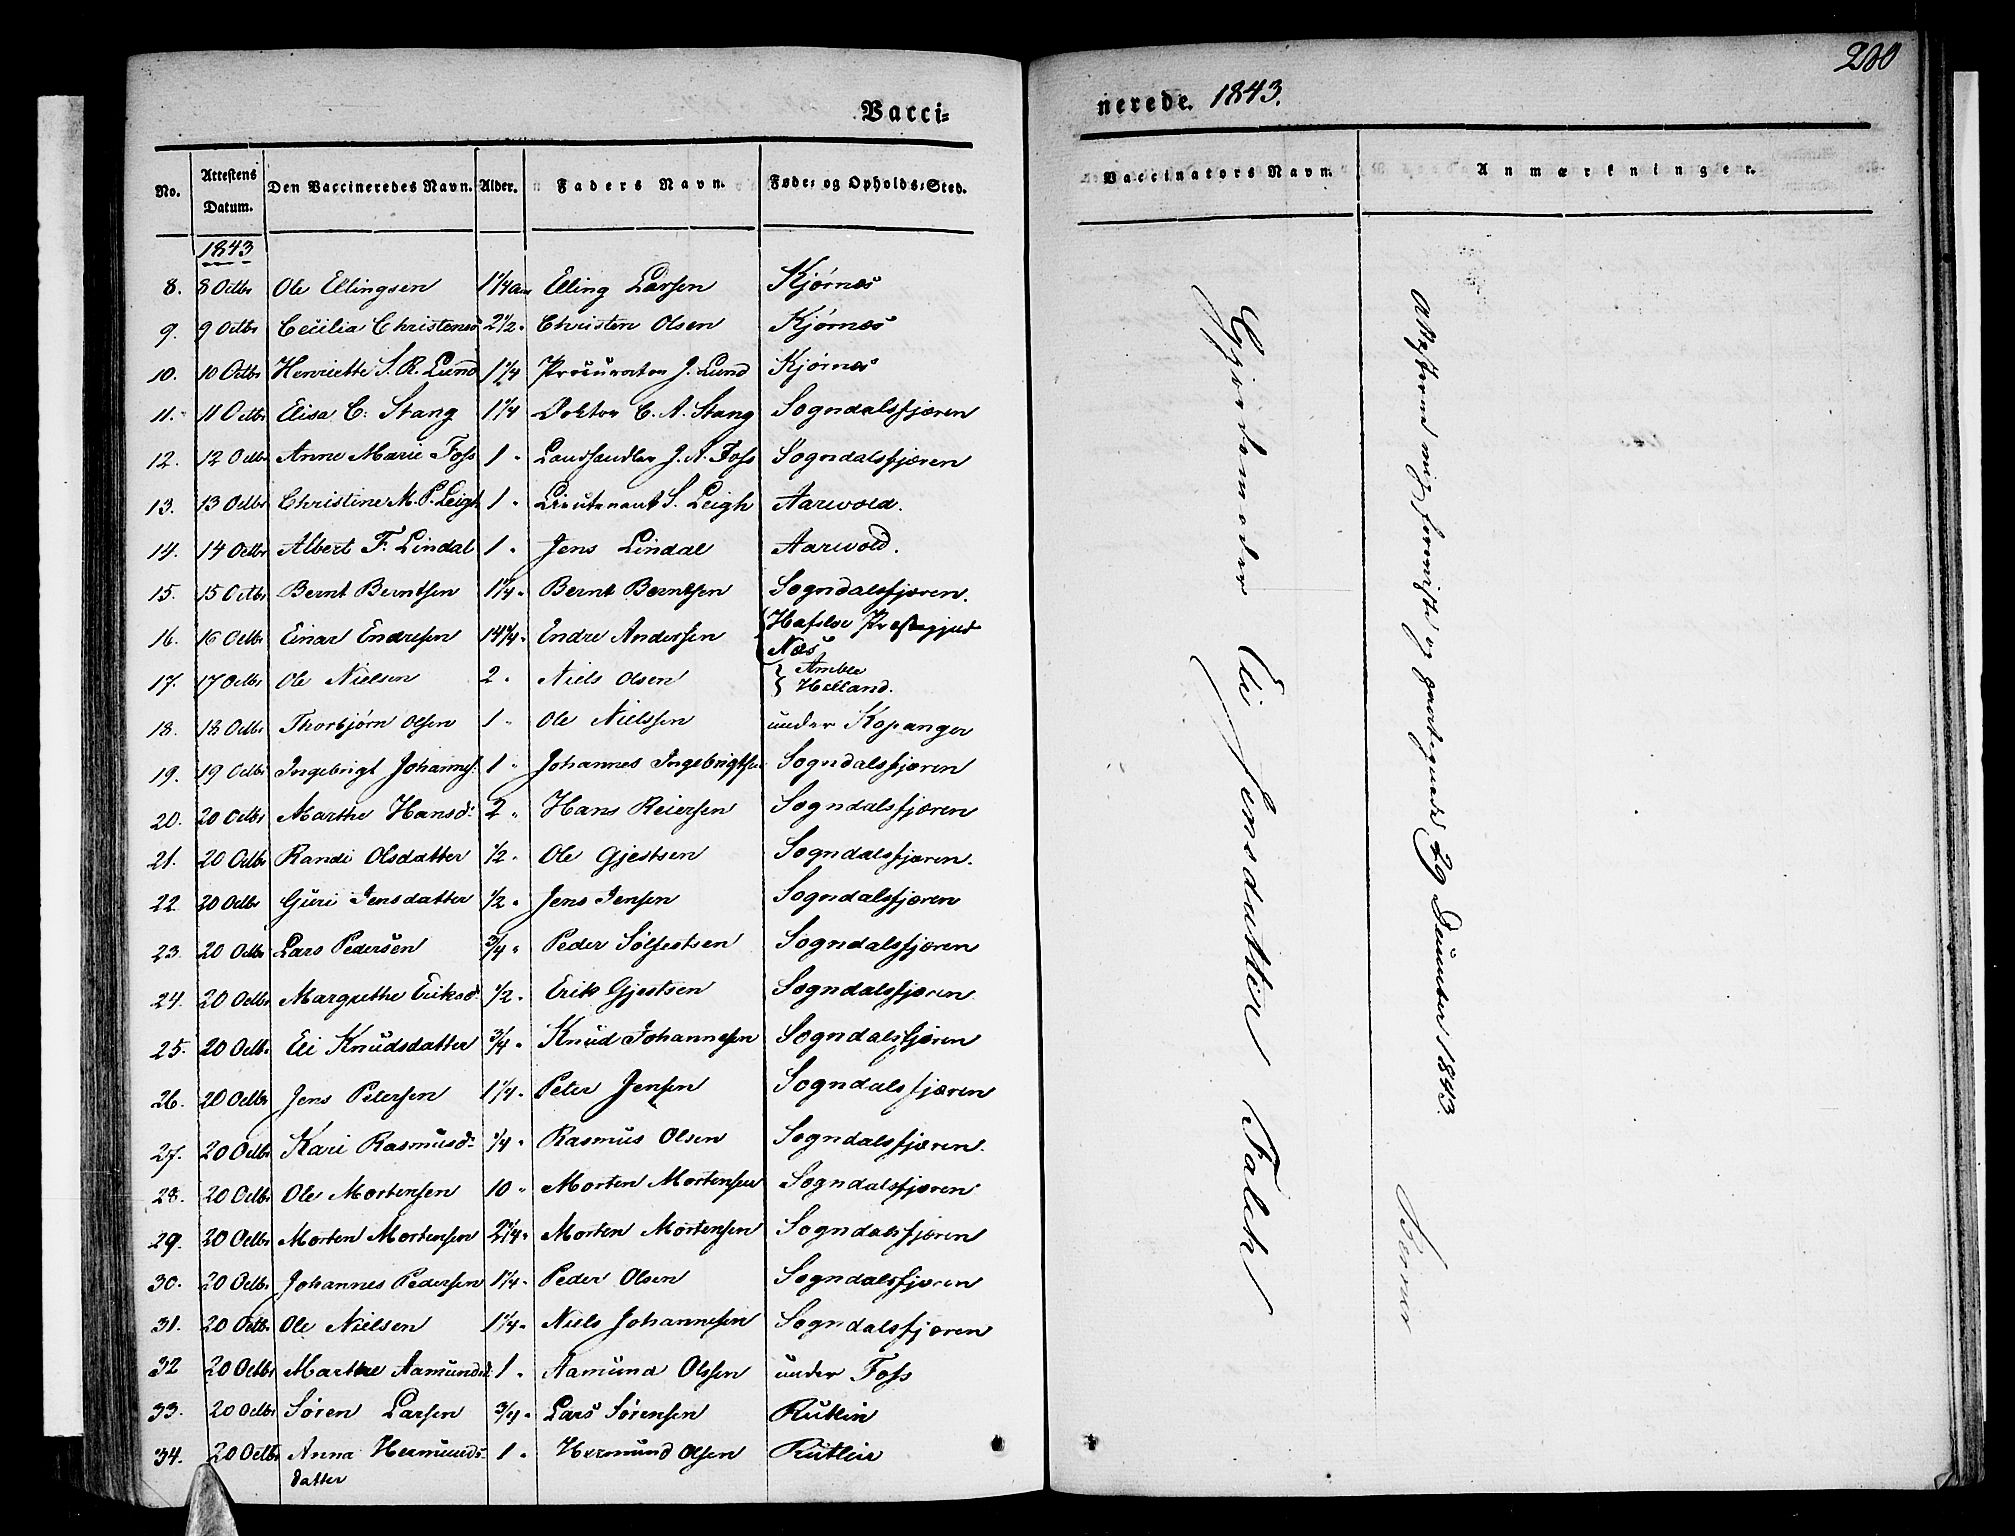 Vacci=
No. Attestens Datum. Den Vaccineredes Navn. Alder. Faders Navn. Føde= og Opholds=Sted.
1843
8. 8 Octbr Ole Ellingsen 1 1/4 Aar Elling Larsen Kjørnæs
9. 9 Octbr Cecilia Christensd 2 1/2 " Christen Olsen Kjørnæs
10. 10 Octbr Henriette S. R. Lund 1 1/4 Procurator J. Lund Kjørnæs
11. 11 Octbr Elisa C. Stang 1 1/4 Doktor C. A. Stang Sogndalsfjæren
12. 12 Octbr Anne Marie Foss 1 " Landhandler J. A. Foss Sogndalsfjæren
13. 13 Octbr Christine M. P. Leigh 1 " Lieutenant S. Leigh Aarvold.
14. 14 Octbr Albert F. Lindal 1 " Jens Lindal Aarvold.
15. 15 Octbr Bernt Berntsen 1 1/4 " Bernt Berntsen Sogndalsfjæren.
16. 16 Octbr Einar Endresen 14 1/4 " Endre Andersen Hafsloe Præstegjeld Næs
17. 17 Octbr Ole Nielsen 2 " Niels Olsen Amble Helland.
18. 18 Octbr Thorbjørn Olsen 1 " Ole Nielssen under Kopanger
19. 19 Octbr Ingebrigt Johannes. 1 " Johannes Ingebrigtsen Sogndalsfjæren
20. 20 Octbr Marthe Hansd: 2 " Hans Reiersen Sogndalsfjæren
21. 20 Octbr Randi Olsdatter 1/2 " Ole Gjestsen Sogndalsfjæren.
22 20 Octbr Guri Jensdatter 1/2 " Jens Jensen Sogndalsfjæren
23. 20 Octbr Lars Pedersen 3/4 " Peder Sølfestsen Sogndalsfjæren
24. 20 Octbr Margrethe Eriksd: 1/2 " Erik Gjestsen Sogndalsfjæren
25. 20 Octb. Eli Knudsdatter 3/4 " Knud Johannesen Sogndalsfjæren
26. 20 Octbr Jens Petersen 1 1/4 " Peter Jensen Sogndalsfjæren
27. 20 Octbr Kari Rasmusd: 1/4 " Rasmus Olsen Sogndalsfjæren.
28. 20 Octbr Ole Mortensen 10 " Morten Mortensen Sogndalsfjæren
29. 20 Octbr Morten Mortensen 2 1/4 " Morten Mortensen Sogndalsfjæren
30. 20 Octbr Johannes Pedersen 1 1/4 " Peder Olsen Sogndalsfjæren
31. 20 Octbr Ole Nielsen 1 1/4 " Niels Johannesen Sogndalsfjæren
32 20 Octbr Marthe Aamundsd: 1 " Aamund Olssen under Foss
33. 20 Octbr Søren Larsen 3/4 " Lars Sørensen Rutlin
34. 20 Octbr Anna Hermunds- 1 " Hermund Olsen Rutlin
datter
200
nerede. 1843.
Vaccinators Navn. Anmærkninger.
Gjordemoder Eli Jensdatter Falch
og 29 December 1843.